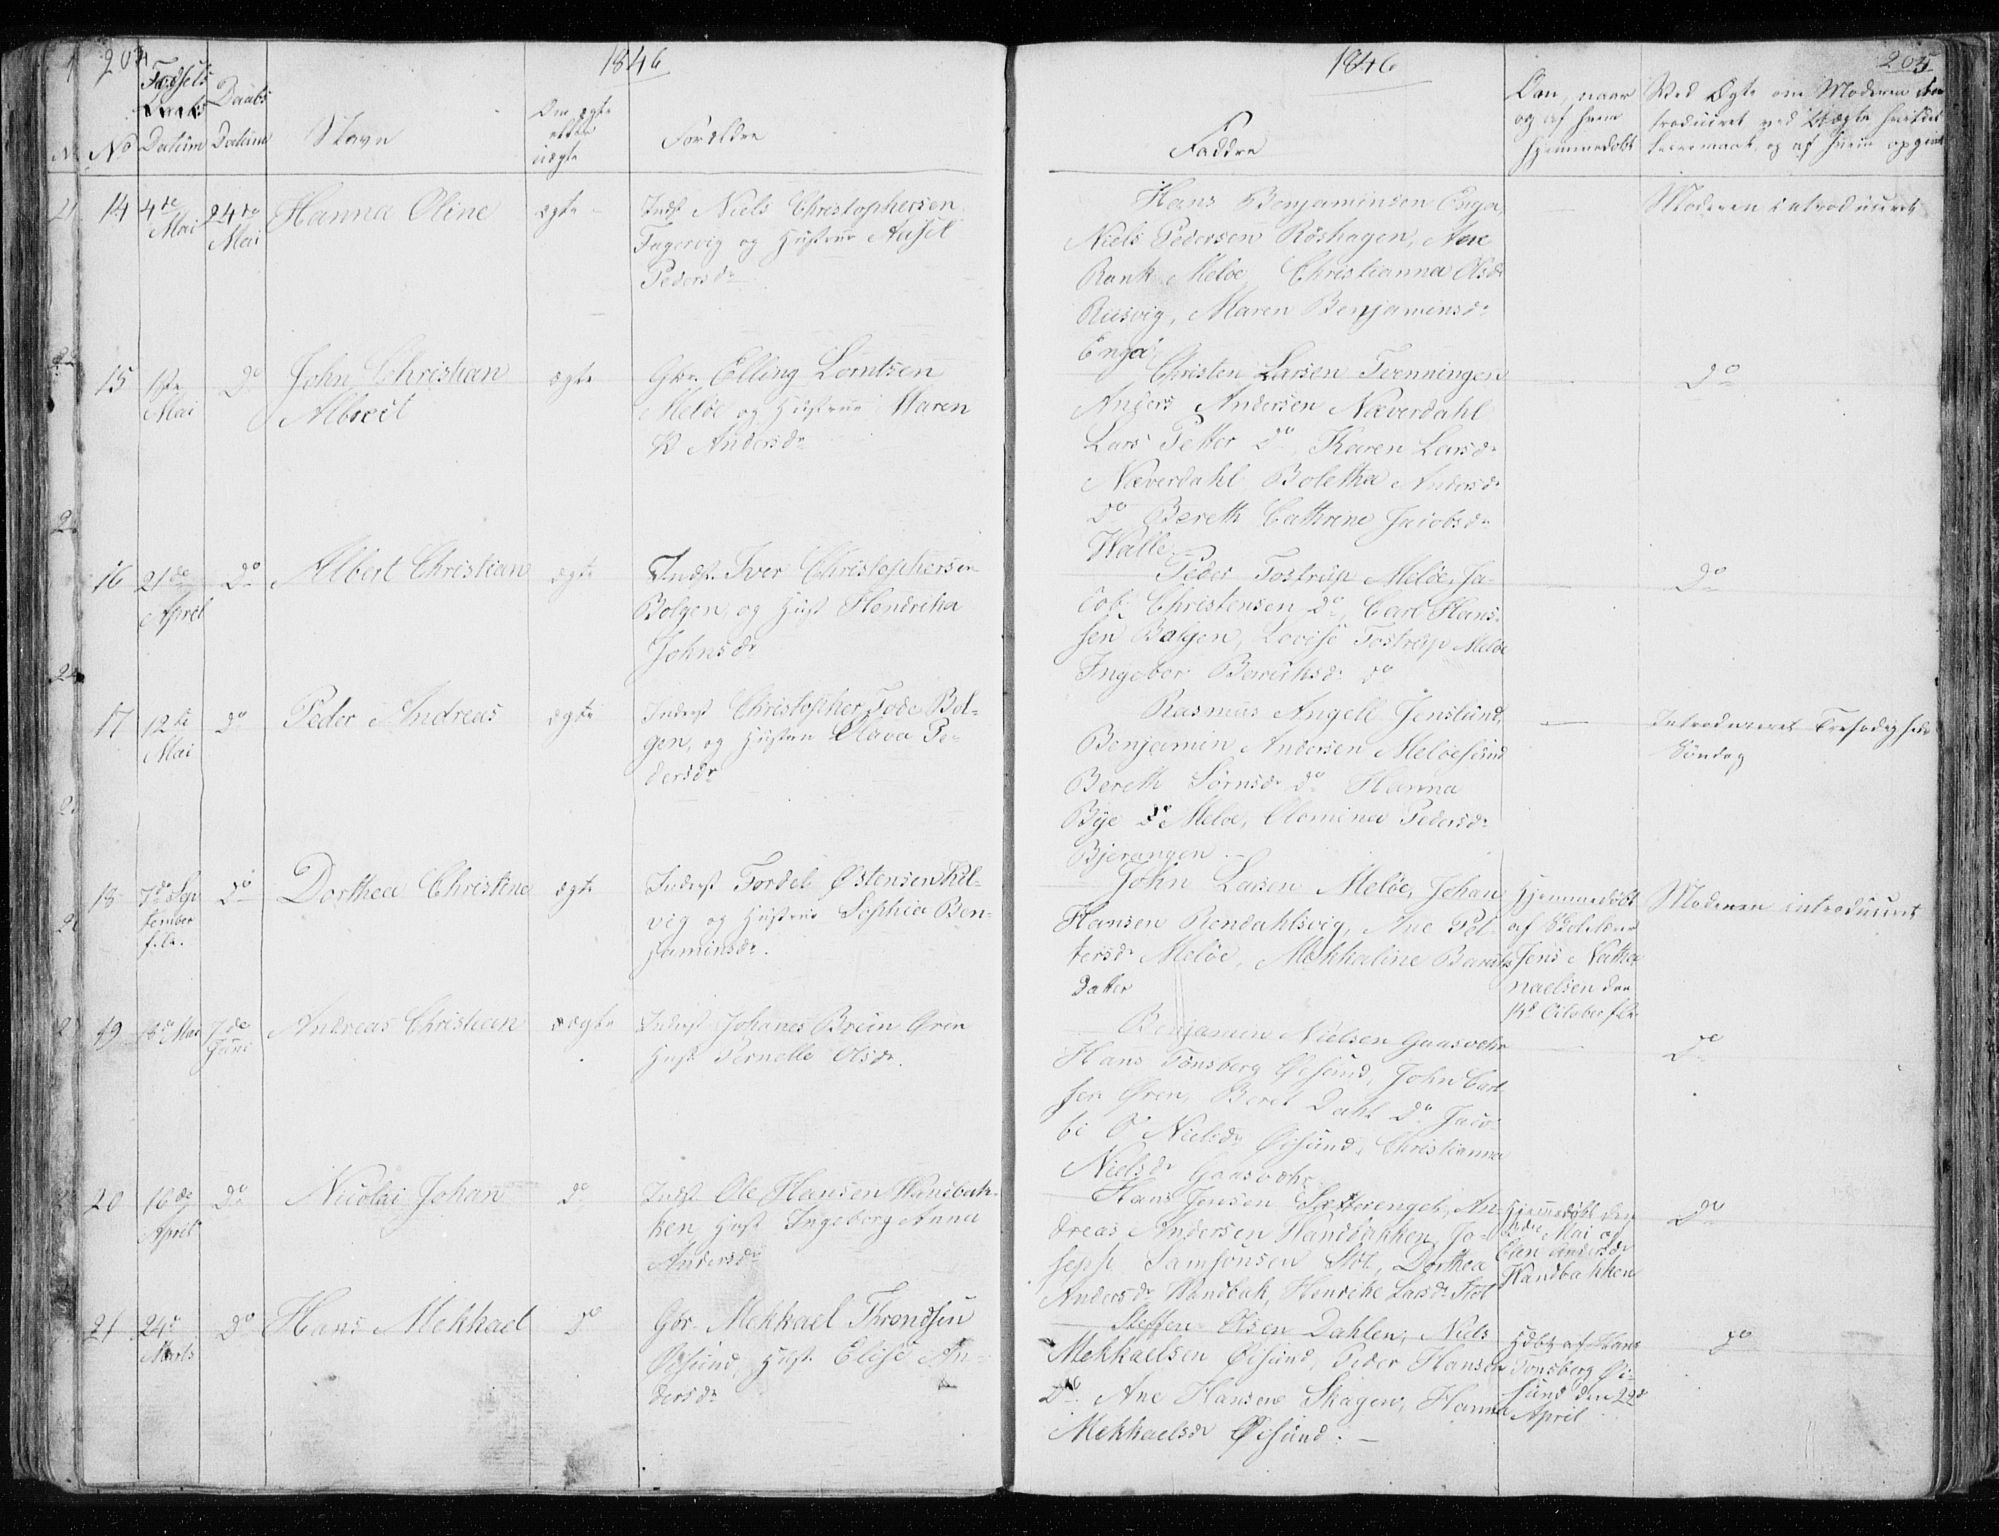 204
1846
Fødsels
Daabs
No
Datum
Datum
Navn
Om ægte
eller
uægte
Forældre
14
4de
Mai
24de
Mai
Hanna Oline
ægte
Inds Niels Christophersen
Fagervig og Hustrue
Pedersdr
15
Mai
Do
John Christian
Albret
ægte
Gbr. Elling Lorntsen
Meløe og Hustrue Maren
Andersdr
16
21de
April
Do
Albert Christian
ægte
Inds. Iver Christophersen
Bolgen, og Hust Hendrikha
Johnsdr
17
12te
Mai
Do
Peder Andreas
ægte
Inderst Christopher Tode Bol-
gen, og Hustrue Olava Pe-
dersdr
18
7de Sep
tember
f.A.
Do
Dorthea Christine
ægte
Inderst Tordel Østensen
vig og Hustrue Sophia Ben-
jaminsdr.
19
Mai
7de
Juni
Andreas Christian
ægte
Inderst Johanes Brun Øren
Hust Pernelle Olsdr.
20
16de
April
Do
Nicolai Johan
Do
Inds Ole Hansen Handbak-
ken, Hust Ingeborg Anna
Andersdr
21
24d
Marts
Do
Hans Mekkael
Do
Gbr. Mekkael Throndsen
Øesund, Hust. Elise An-
dersdr
1846
205
Faddre
Om, naar
og af hvem
hjemmedøbt
Ved Ægte om Moderen
Hans Benjaminsen Enga,
Niels Pedersen Røshagen, Ane
Rank Meløe Christianna Olsdr
Riisvig, Maren Benjaminsdr
Enga
Moderen introduceret
Christen Larsen Tvenningen
Anders Andersen Næverdahl
Lars Petter Do, Karen Larsdr
Næverdahl Boletha Andersdr
Do Bereth Cathrine Jacobsdr
Walle
Do
Peder Tostrup Meløe, Ja-
cob Christensen Do, Carl Hans-
sen Bolgen, Lovise Tostrup Meløe
Ingebor Do
Do
Rasmus Angell Jenslund,
Benjamin Andersen Meløesund
Bereth Sørnsdr Do Hanna
Bye Do Meløe, Olomina Pedersdr
Bjerangen
Introduceret
Søndag
John Larsen Meløe, Johan
Hansen Rendahlsvig, Ane Pet-
tersdr Meløe, Mekkaline
Datter
Hjemmedøbt
af Skolelærer
Jens Natha
naelsen den
14d October f.A.
Moderen introduceret
Benjamin Nielsen Gaasvær
Hans Tønsberg Øesund, John Carl
sen Øren, Beret Dahl Do Jaco
bi O Nielsdr Øesund, Christianna
Nielsdr Gaasvær
Do
Hans Jensen Sætterenget, An-
dreas Andersen Handbakken, Jo-
seph Samsonsen Støt, Dorthea
Andersdr Handbak, Henrike Larsdr Støt
Hjemmedøbt den
Mai af
Elen Andersdr
Handbakken
Do
Steffen Olsen Dahlen, Niels
Mekkaelsen Øesund, Peder Hansen
Do Ane Hansen Skagen, Hanna
Mekkaelsdr Øesund.
Hdbt af Hans
Tønsberg Øe-
sund den 22d
April
Do